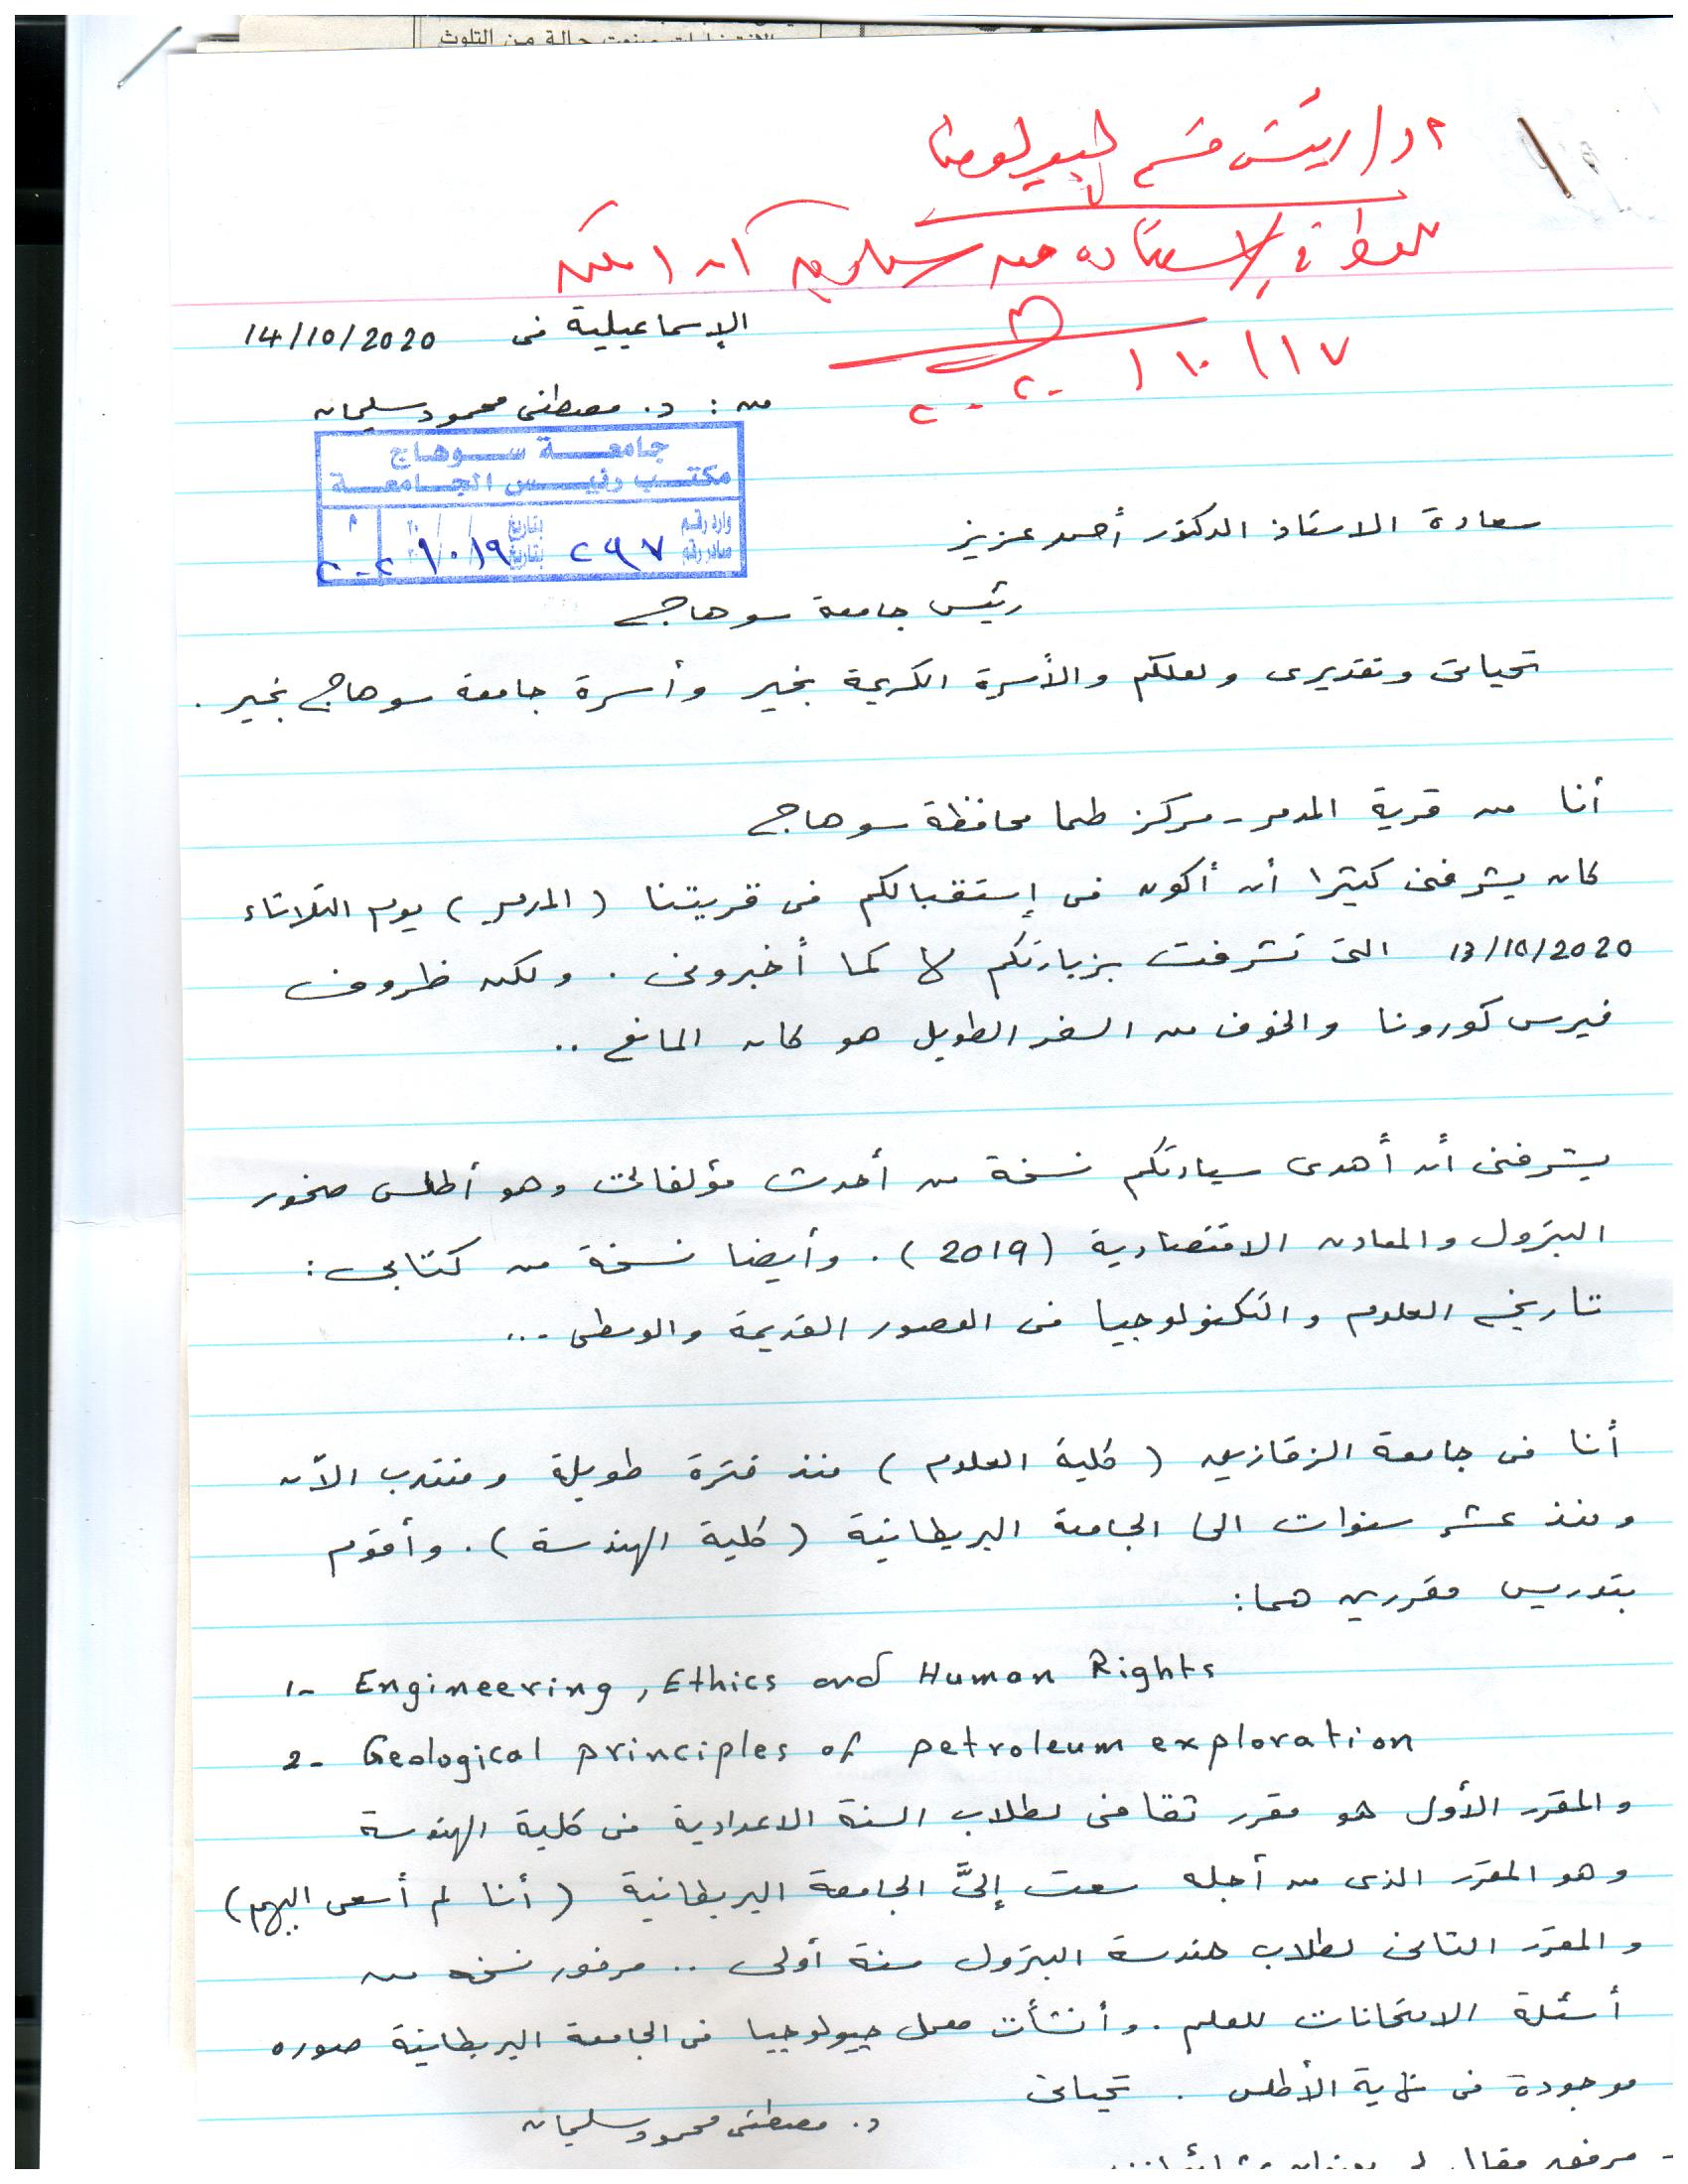 الانتخابات صنعت حالة من التلوث
أ د / رئيس قسم الجيولوجيا
للنظر في الاستفادة من سيادته إن أمكن
١٧ / ١٠ / ٢٠٢٠
الإسماعيلية فى 14/10/2020
من : د. مصطفى محمود سليمان
جامعة سوهاج
مكتب رئيس الجامعة
وارد رقم بتاريخ / / ٢٠ م
صادر رقم ٢٩٧ بتاريخ ١٩ / ١٠ ٢٠٢٠
سعادة الاستاذ الدكتور أحمد عزيز
رئيس جامعة سوهاج
تحياتى وتقديرى ولعلكم والأسرة الكريمة بخير وأسرة جامعة سوهاج بخير .
أنا من قرية المدمر - مركز طما محافظة سوهاج
كان يشرفنى كثيرا أن أكون فى إستقبالكم فى قريتنا ( المدمر ) يوم الثلاثاء
13/10/2020 التى تشرفت بزيارتكم لها كما أخبرونى . ولكن ظروف
فيرس كورونا والخوف من السفر الطويل هو كان المانع ..
يشرفنى أن أهدى سيادتكم نسخة من أحدث مؤلفاتى وهو أطلس صخور
البترول والمعادن الاقتصادية (2019) . وأيضا نسخة من كتابى :
تاريخ العلوم والتكنولوجيا فى العصور القديمة والوسطى ...
أنا فى جامعة الزقازيق ( كلية العلوم ) منذ فترة طويلة ومنتدب الآن
ومنذ عشر سنوات الى الجامعة البريطانية ( كلية الهندسة ) . وأقوم
بتدريس مقررين هما :
1- Engineering, Ethics and Human Rights
2- Geological principles of petroleum exploration
والمقرر الأول هو مقرر ثقافى لطلاب السنة الاعدادية فى كلية الهندسة
وهو المقرر الذى من أجله سعت إلىَّ الجامعة البريطانية ( أنا لم أسعى اليهم )
والمقرر الثانى لطلاب هندسة البترول سنة أولى .. مرفق نسخه من
أسئلة الامتحانات للعلم . وأنشأت معمل جيولوجيا فى الجامعة البريطانية صوره
موجودة فى نهاية الأطلس . تحياتى
د. مصطفى محمود سليمان
مرفق مقال لى بعنوان